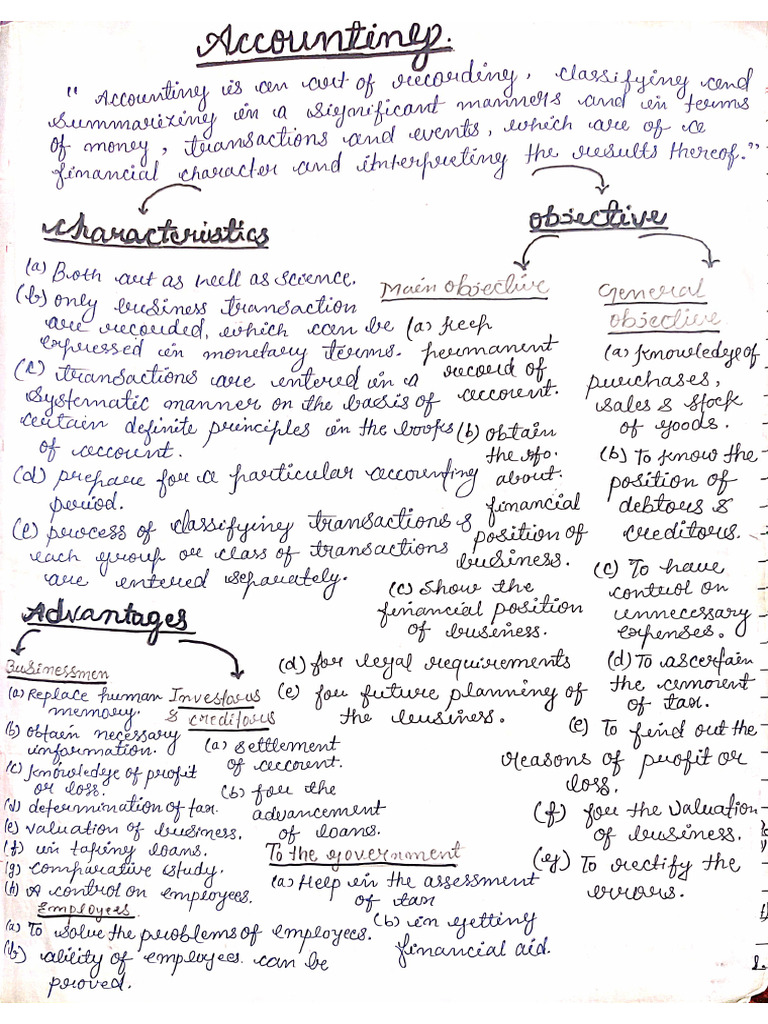 Accounting.
"Accounting is an art of recording, classifying and
summarizing in a significant manners and in terms
of money, transactions and events, which are of a
financial character and interpreting the results thereof."
Characteristics
(a) Both art as well as science.
(b) only business transaction
are recorded, which can be
expressed in monetary terms.
(c) transactions are entered in a
systematic manner on the basis of
certain definite principles in the books
of account.
(d) prepare for a particular accounting
period.
(e) process of classifying transactions &
each group or class of transactions
are entered separately.
Objective
Main Objective
(a) keep
permanent
record of
account.
(b) obtain
the efo.
about
financial
position of
business.
(c) show the
financial position
of business.
(d) for legal requirements
(e) for future planning of
the business.
General
Objective
(a) knowledge of
purchases,
sales & stock
of goods.
(b) To know the
position of
debtors &
creditors.
(c) To have
control on
unnecessary
expenses.
(d) To ascertain
the amount
of tax.
(e) To find out the
reasons of profit or
loss.
(f) for the valuation
of business.
(g) To rectify the
errors.
Advantages
Businessmen
(a) Replace human
memory.
(b) obtain necessary
information.
(c) knowledge of profit
or loss.
(d) determination of tax.
(e) valuation of business.
(f) in taking loans.
(g) comparative study.
(h) A control on employees.
Investors
& creditors
(a) settlement
of account.
(b) for the
advancement
of loans.
To the government
(a) Help in the assessment
of tax
(b) in getting
financial aid.
Employees
(a) To solve the problems of employees.
(b) ability of employees can be
proved.